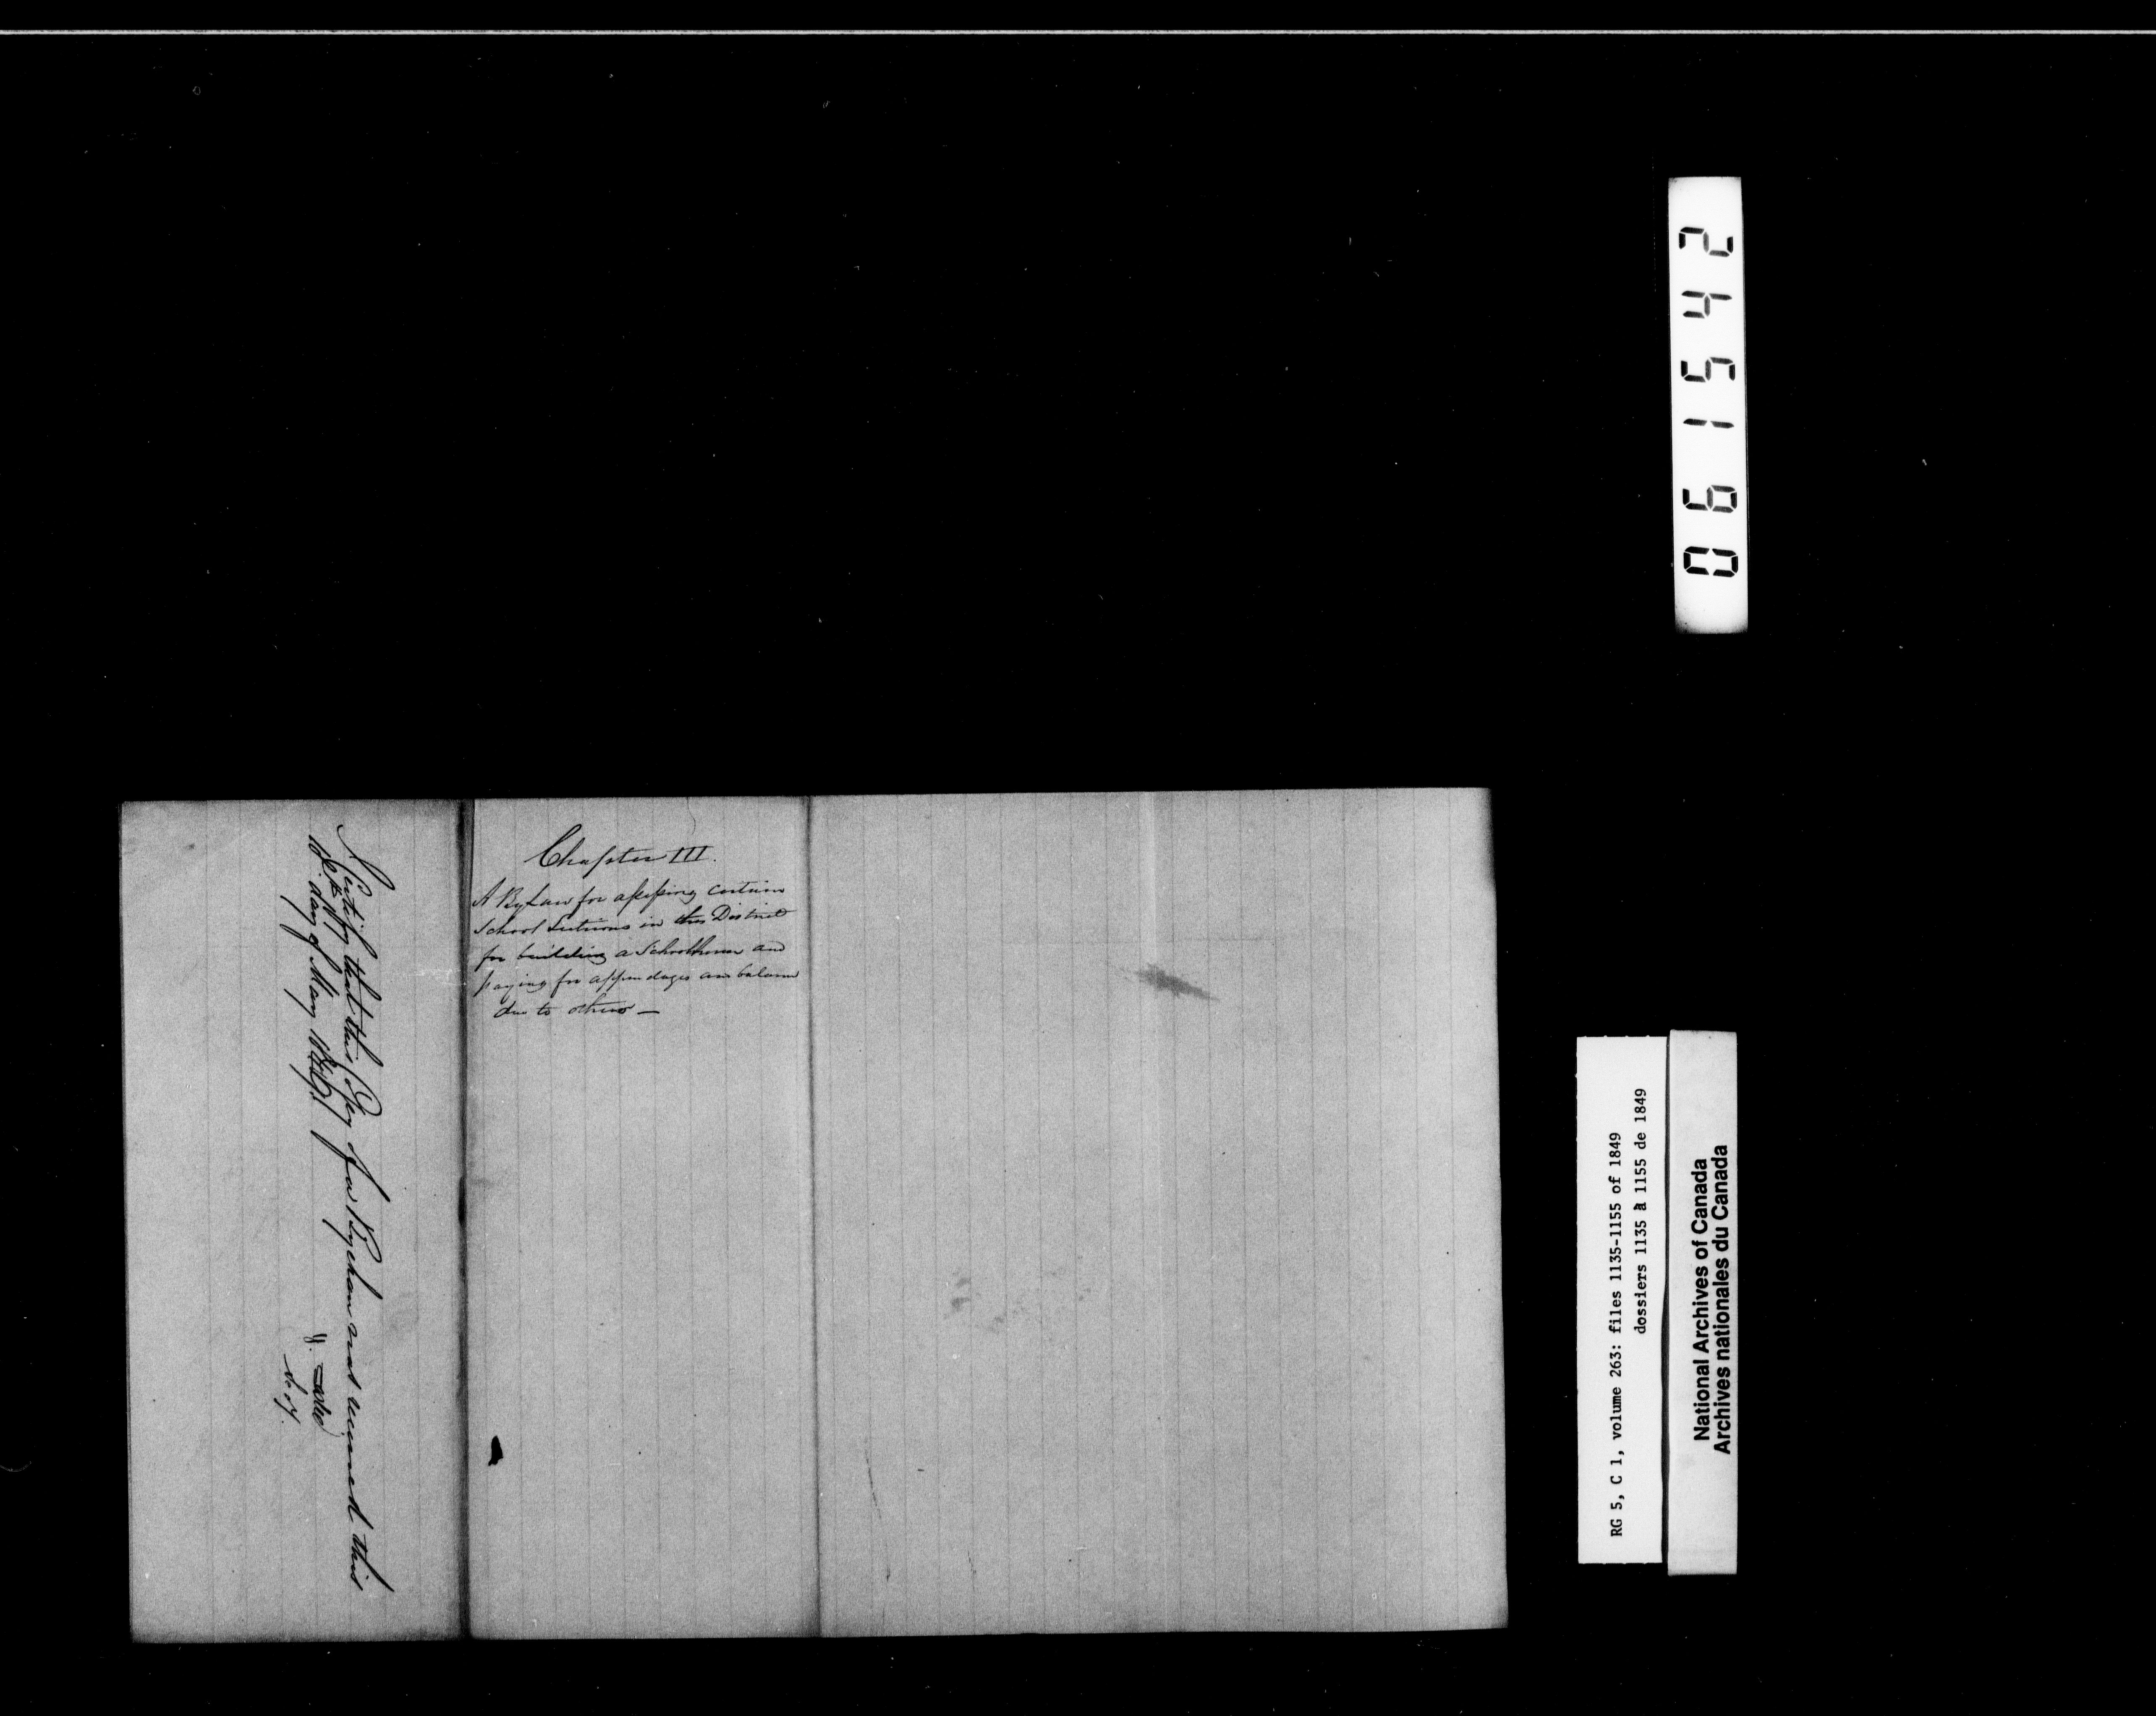 Chapter III.
A By Law for assessing certain
School Sections in this District
for building a Schoolhouse and
paying for appendages and balance
due to others —
I Certify that this Copy of a Byelaw was received this
10th day of May 1849
061542
RG 5, C 1, volume 263: files 1135-1155 of 1849
dossiers 1135 à 1155 de 1849
National Archives of Canada
Archives nationales du Canada